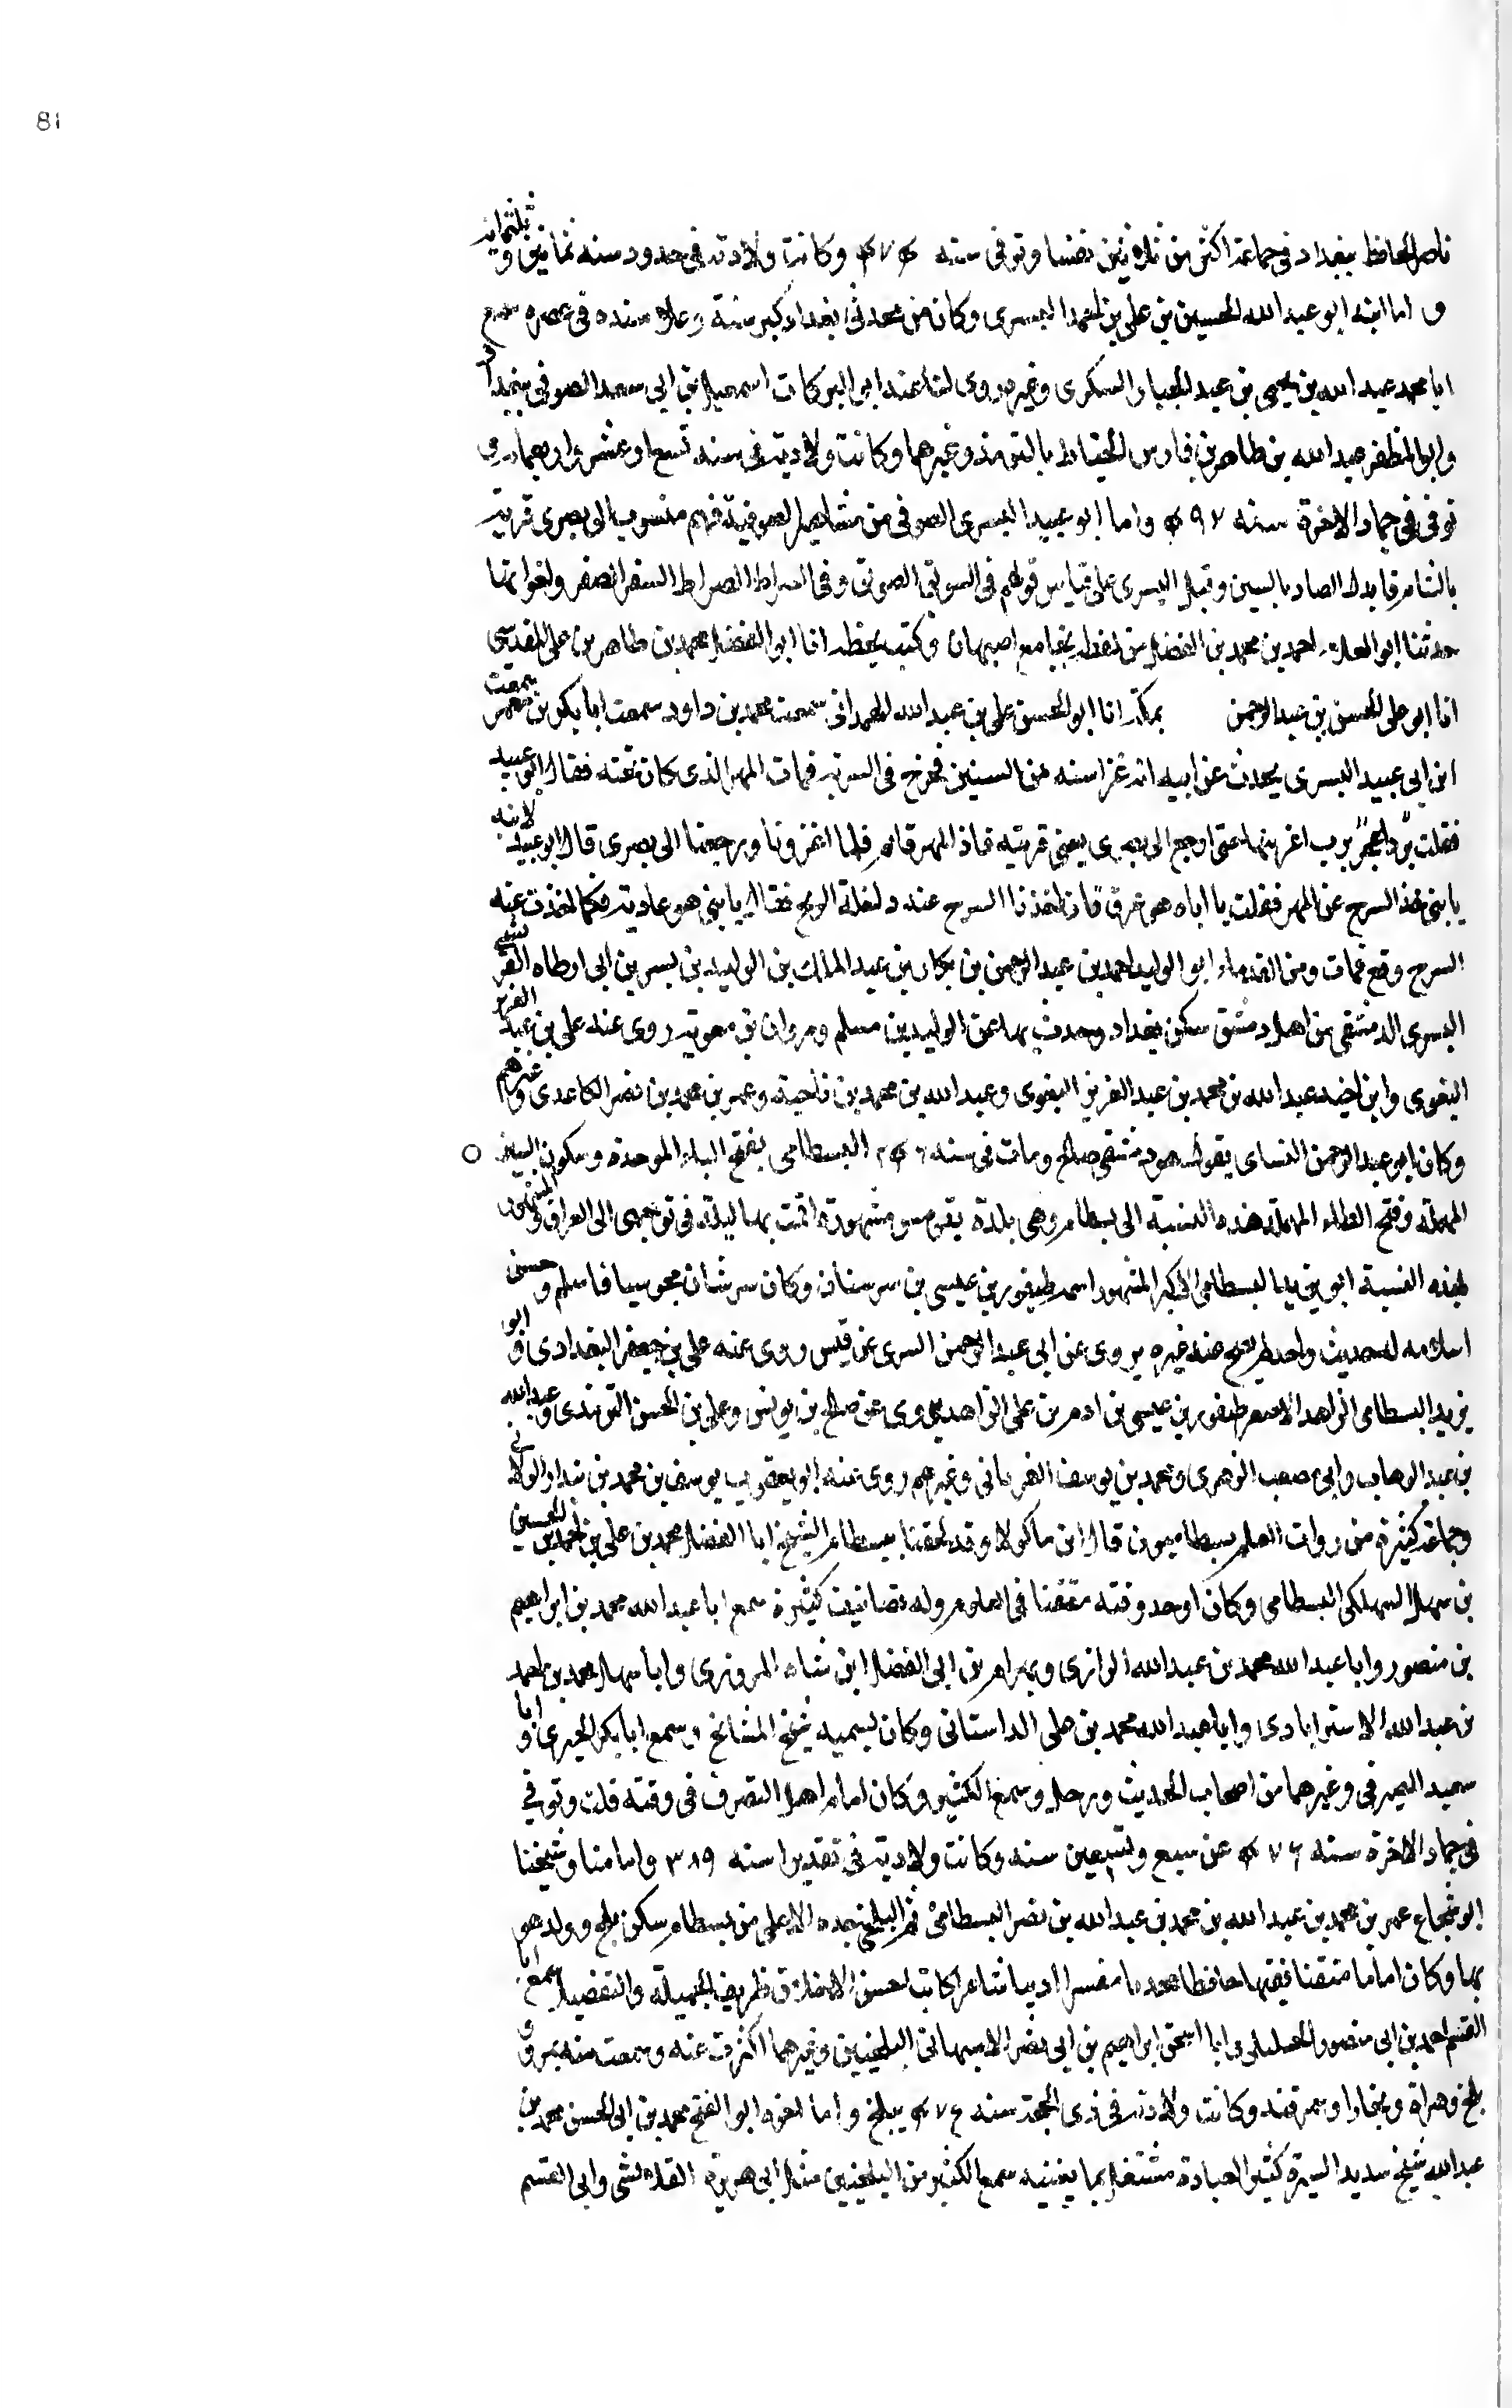 81
ناصر الحافظ ببغداد في جماعة اكثر من ثلاثين نفسا وتوفى سنه وكانت ولادته في حدود سنه ثمانين و ثلثمايه
و اما ابنه ابو عبد الله الحسين بن علي بن احمد البسرى وكان من محدثى بغداد كبر سنه وعلا سنده في عصره سمع
ابا محمد عبد الله بن يحيى بن عبد الجبار السكرى وغيره روى لنا عنه ابو البركات اسمعيل بن ابي سعد الصوفى ببغداد
وابو المظفر عبد الله بن طاهر بن فارس الخياط بالتومذ وغيرهما وكانت ولادته في سنه تسع او عشر واربعمايه و
توفى في جماد الاخرة سنه ٤٩٧ واما ابو عبيد البسرى الصوفى من مشاهير الصوفية فهو منسوب الى بصرى قرية
بالشام فابدل الصاد بالسين وقيل البسرى على قياس قولهم في السويق الصويق وفي السراط الصراط السقر الصقر ولغواتها
حدثنا ابو العلاء احمد بن محمد بن الفضل من لفظه بجامع اصبهان وكتب بخطه انا ابو الفضل محمد بن طاهر بن على المقدسى
انا ابو على الحسن بن عبد الرحمن بمكة انا ابو الحسن على بن عبد الله الهمدانى سمعت محمد بن داود سمعت ابا بكر بن معمر سمعت
ابن ابي عبيد البسرى يحدث عن ابيه انه غزا سنه من السنين فخرج في السرية فمات المهر الذى كان تحته فقال ابو عبيد
فقلت يرب اعرنيها حتى ارجع الى بصرى يعنى قريته فاذا المهر قائم فلما انغزونا ورجعنا الى بصرى قال ابو عبيد لابنه
يا بنى خذ السرج عن المهر فقلت يا اباه هو عرق فان اخذنا السرج عنه دخله الريح فقال يا بنى هو عارية فكما اخذت عنه
السرج وقع فمات ومن القدماء ابو الوليد احمد بن عبد الرحمن بن بكار بن عبد الملك بن الوليد بن بسر بن ابي ارطاه القرشى
البسرى الدمشقى من اهل دمشق سكن بغداد وحدث بها عن الوليد بن مسلم ومروان بن معوية روى عنه على بن عبد العزيز
البغوى وابن اخيه عبد الله بن محمد بن عبد العزيز البغوى وعبد الله بن محمد بن ناحية وعمر بن محمد بن نصر الكاغدى وغيرهم
وكان ابو عبد الرحمن النساى يقول هو دمشقى صالح ومات في سنه البسطامى بفتح الباء الموحدة وسكون السين
المهملة وفتح الطاء المهملة هذه النسبة الى بسطام وهى بلدة بقومس مشهورة اقمت بها ليلة في توجهى الى العراق والمشهور
بهذه النسبة ابو يزيد البسطامى الاكبر المشهور اسمه طيفور بن عيسى بن سرسنان وكان سرشان مجوسيا فاسلم وحسن
اسلامه له حديث واحد لم يصح عنه غيره يروى عن ابي عبد الرحمن السرى عن قيس روى عنه على بن جعفر البغدادى وابو
يزيد البسطامى الزاهد الاصغر طيفور بن عيسى بن ادم بن على الزاهد يروى عن صالح بن يونس وعلى بن الحسن الترمذى وعبد الله
بن عبد الوهاب وابى مصعب الزهرى ومحمد بن يوسف الفريانى وغيرهم روى عنه ابو يعقوب يوسف بن محمد بن شداد
وجماعة كثيرة من روات العلم بسطاميون قال ابن ماكولا وقد لحقنا ببسطام الشيخ ابا الفضل محمد بن على بن احمد بن الحسين
بن سهل السهلكى البسطامى وكان اوحد وقته متقنا في العلوم وله تصانيف كثيرة سمع ابا عبد الله محمد بن ابراهيم
بن منصور وابا عبد الله محمد بن عبد الله الرازى وبهرام بن ابي الفضل ابن شاه المروزى وابا سهل محمد بن احمد
بن عبد الله الاسترابادى وابا عبد الله محمد بن على الداستانى وكان يسميه شيخ المشائخ وسمع ابا بكر الحيرى وابا
سعيد الصيرفى وغيرهما من اصحاب الحديث ورحل وسمع الكثير وكان امام اهل التصوف فى وقته قلت وتوفى
فى جماد الاخرة سنه ٤٧٦ عن سبع وتسعين سنه وكانت ولادته في تقديرا سنه ٣٨٩ واما امامنا وشيخنا
ابو شجاع عمر بن محمد بن عبد الله بن محمد بن عبد الله بن نصر البسطامى ثم البلخى جده الاعلى من بسطام سكن بلخ وولد هو
بها وكان اماما متقنا فقيها حافظا محدثا مفسرا اديبا شاعرا كاتبا حسن الاخلاق ظريف الجميلة والتفضيل سمع ابا
القسم احمد بن ابي منصور الخليلى وابا اسحق ابراهيم بن ابي نصر الاصبهانى البلخيين وغيرهما اكثرت عنه وسمعت منه بمرو و
بلخ وهراة وبخارا وسمرقند وكانت ولادته في ذى الحجة سنه ببلخ واما اخوه ابو الفتح محمد بن ابي الحسن محمد بن
عبد الله شيخ سديد السيرة كثير العبادة مشتغل بما يعنيه سمع الكثير من البلخيين مثل ابى هريرة القلانسى وابى القسم